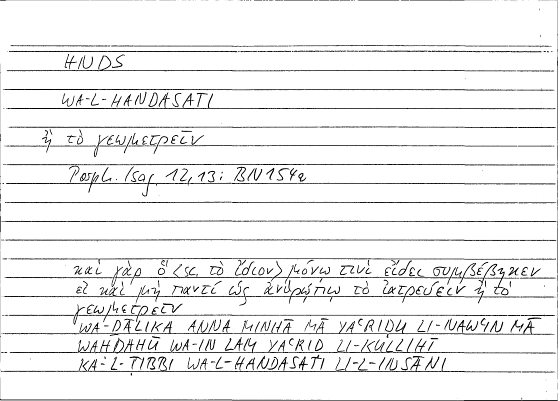 HNDS
WA-L-HANDASATI
ἢ τὸ γεωμετρεῖν
Porph. Isag. 12,13: BN 154a
καὶ γὰρ ὃ <sc. τὸ ἴδιον> μόνῳ τινὶ εἴδει συμβέβηκεν
εἰ καὶ μὴ παντὶ ὡς ἀνθρώπῳ τὸ ἰατρεύειν ἢ τὸ
γεωμετρεῖν
WA-ḎĀLIKA ANNA MINHĀ MĀ YAʿRIḌU LI-NAWʿIN MĀ
WAḤDAHŪ WA-IN LAM YAʿRIḌ LI-KULLIHĪ
KA-L-ṬIBBI WA-L-HANDASATI LI-L-INSĀNI